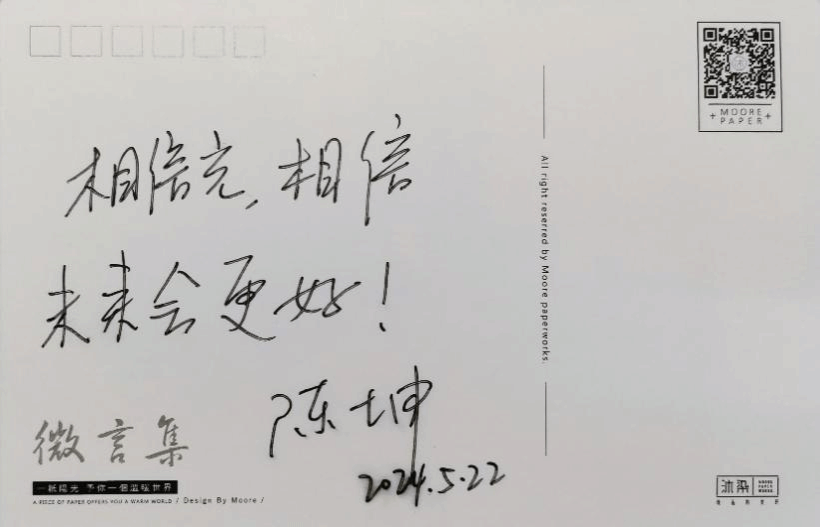 MOORE
PAPER
相信光,相信
未来会更好!
陈坤
2024.5.22
微言集
一紙陽光 予你一個溫暖世界
A PIECE OF PAPER OFFERS YOU A WARM WORLD / Design By Moore /
All right reserred by Moore paperworks.
沐染
MOORE
PAPER
WORKS